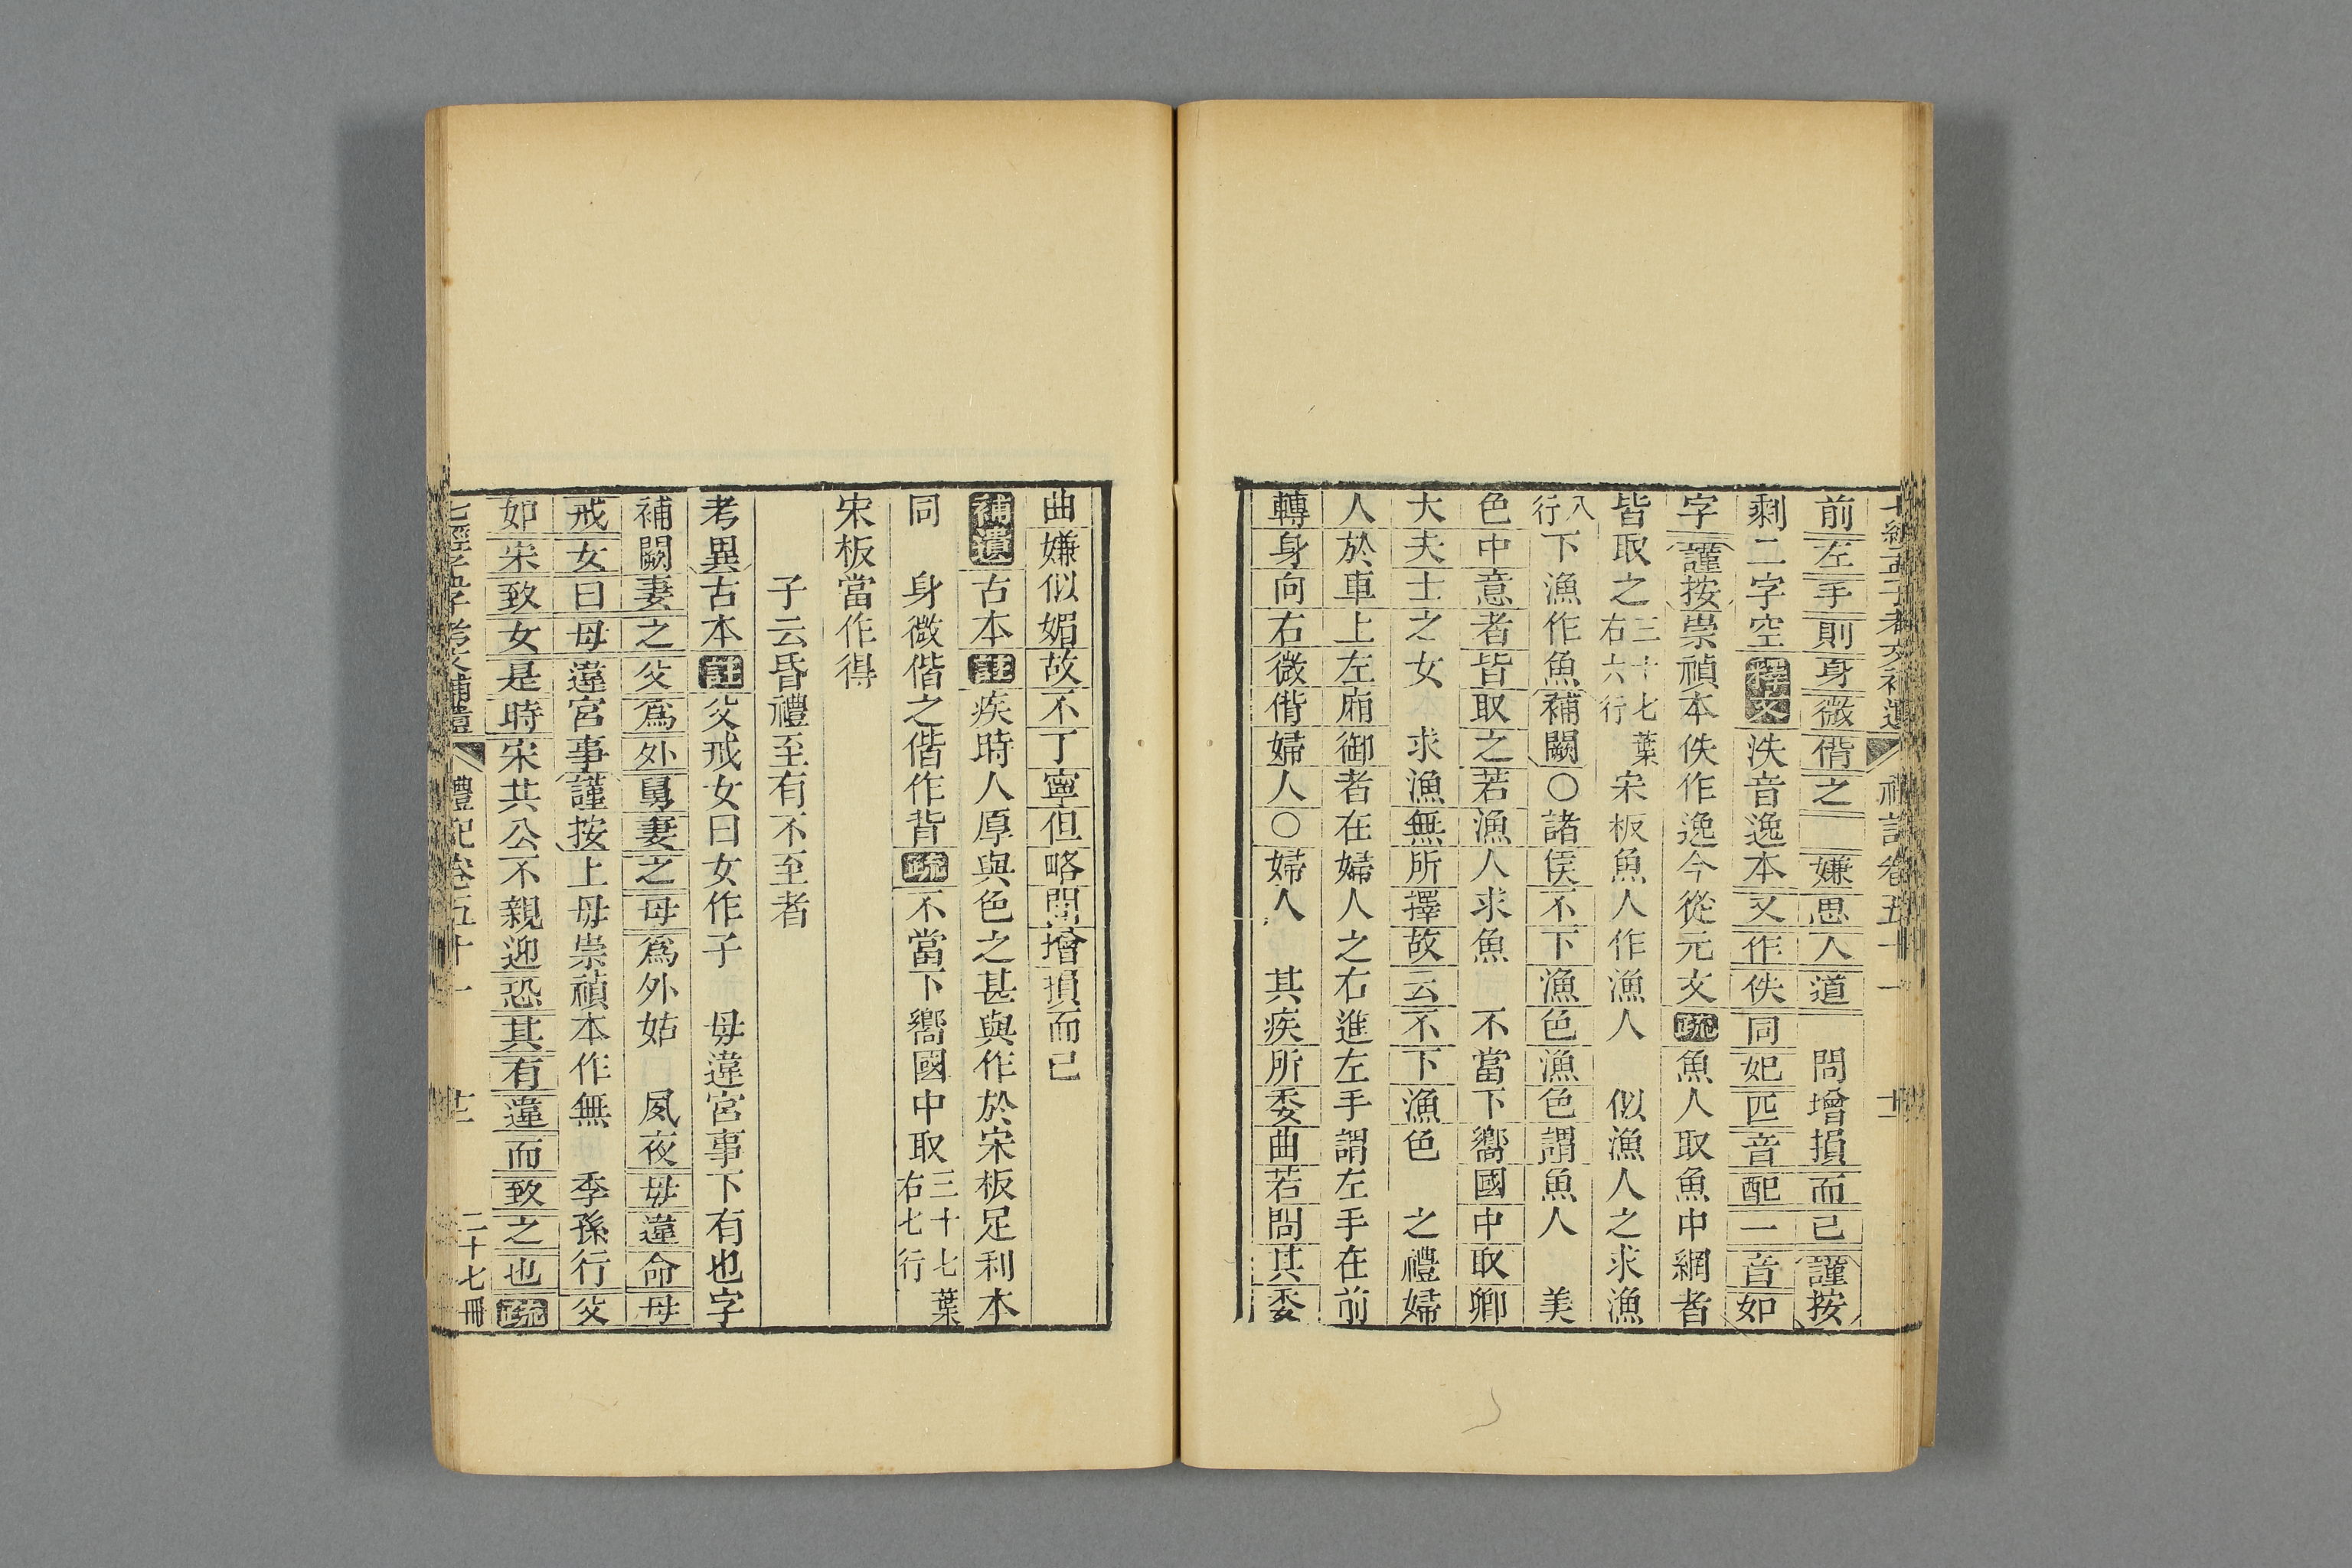 七經孟子考文補遺 禮記卷五十一 廿二
前左手則身微偕之 嫌思人道 問增損而已謹按
剩二字空釋文泆音逸本又作佚同妃匹音配一音如
字謹按崇禎本佚作逸今從元文疏魚人取魚中網者
皆取之三十七葉右六行宋板魚人作漁人 似漁人之求漁
八行下漁作魚補闕○諸侯不下漁色漁色謂魚人 美
色中意者皆取之若漁人求魚 不當下嚮國中取卿
大夫士之女 求漁無所擇故云不下漁色 之禮婦
人於車上左廂御者在婦人之右進左手謂左手在前
轉身向右微偝婦人○婦人 其疾所委曲若問其委
曲嫌似媚故不丁寧但略問增損而已
補遺古本註疾時人厚與色之甚與作於宋板足利本
同 身微偕之偕作背疏不當下嚮國中取三十七葉右七行
宋板當作得
子云昏禮至有不至者
考異古本註父戒女曰女作子 毋違宮事下有也字
補闕妻之父爲外舅妻之母爲外姑 夙夜毋違命母
戒女曰毋違宮事謹按上毋崇禎本作無 季孫行父
如宋致女是時宋共公不親迎恐其有違而致之也疏
七經孟子考文補遺 禮記卷五十一 廿二 二十七冊